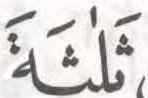 ثَلٰثَةَ